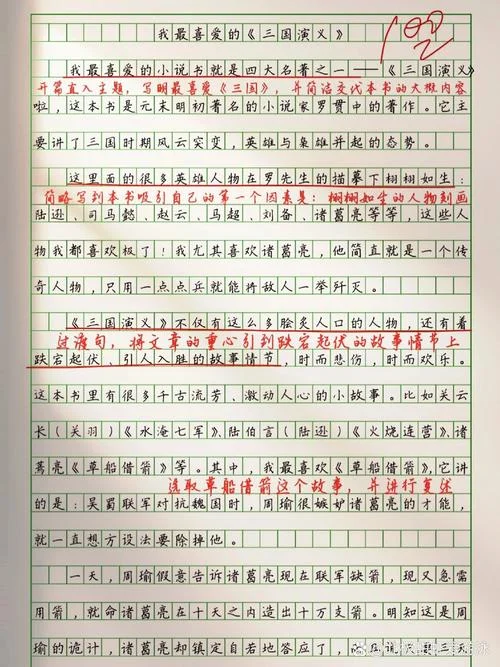 我最喜爱的《三国演义》
100
我最喜爱的小说书就是四大名著之一——《三国演义》
开篇直入主题,写明最喜爱《三国》,并简洁交代本书的大概内容
啦,这本书是元末明初著名的小说家罗贯中的著作。它主
要讲了三国时期风云突变,英雄与枭雄并起的态势。
这里面的很多英雄人物在罗先生的描摹下栩栩如生:
简略写到本书吸引自己的第一个因素是:栩栩如生的人物刻画
陆逊、司马懿、赵云、马超、刘备、诸葛亮等等,这些人
物我都喜欢极了!我尤其喜欢诸葛亮,他简直就是一个传
奇人物,只用一点点兵就能将敌人一举歼灭。
《三国演义》不仅有这么多脍炙人口的人物,还有着
过渡句,将文章的重心引到跌宕起伏的故事情节上
跌宕起伏、引人入胜的故事情节,时而悲伤,时而欢乐。
这本书里有很多千古流芳、激动人心的小故事。比如关云
长(关羽)《水淹七军》、陆伯言(陆逊)《火烧连营》、诸
葛亮《草船借箭》等。其中,我最喜欢《草船借箭》,它讲
选取草船借箭这个故事,并进行复述
的是:吴蜀联军对抗魏国时,周瑜很嫉妒诸葛亮的才能,
就一直想方设法要除掉他。
一天,周瑜假意告诉诸葛亮现在联军缺箭,现又急需
用箭,就命诸葛亮在十天之内造出十万支箭。明知这是周
瑜的诡计,诸葛亮却镇定自若地答应了,